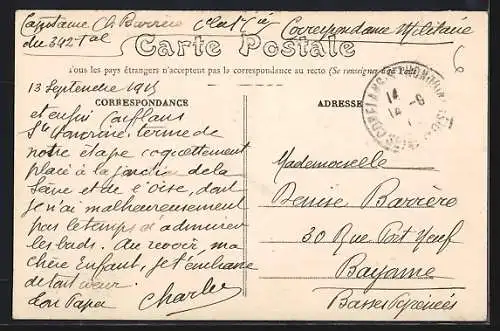 Capitaine Ch Barrère
Correspondance Militaire
du 342
Carte Postale
Tous les pays étrangers n'acceptent pas la correspondance au recto (Se renseigner à la Poste)
13 Septembre 1915
CORRESPONDANCE
ADRESSE
et enfin Conflans
Ste Honorine, terme de
notre étape coquettement
placé à la jonction de la
Seine et de l'Oise, dont
je n'ai malheureusement
pas le temps d'admirer
les bords. Au revoir, ma
chère Enfant, je t'embrasse
de tout coeur.
ton Papa
Charles
Mademoiselle
Denise Barrère
30 Rue Port Neuf
Bayonne
Basses Pyrénées